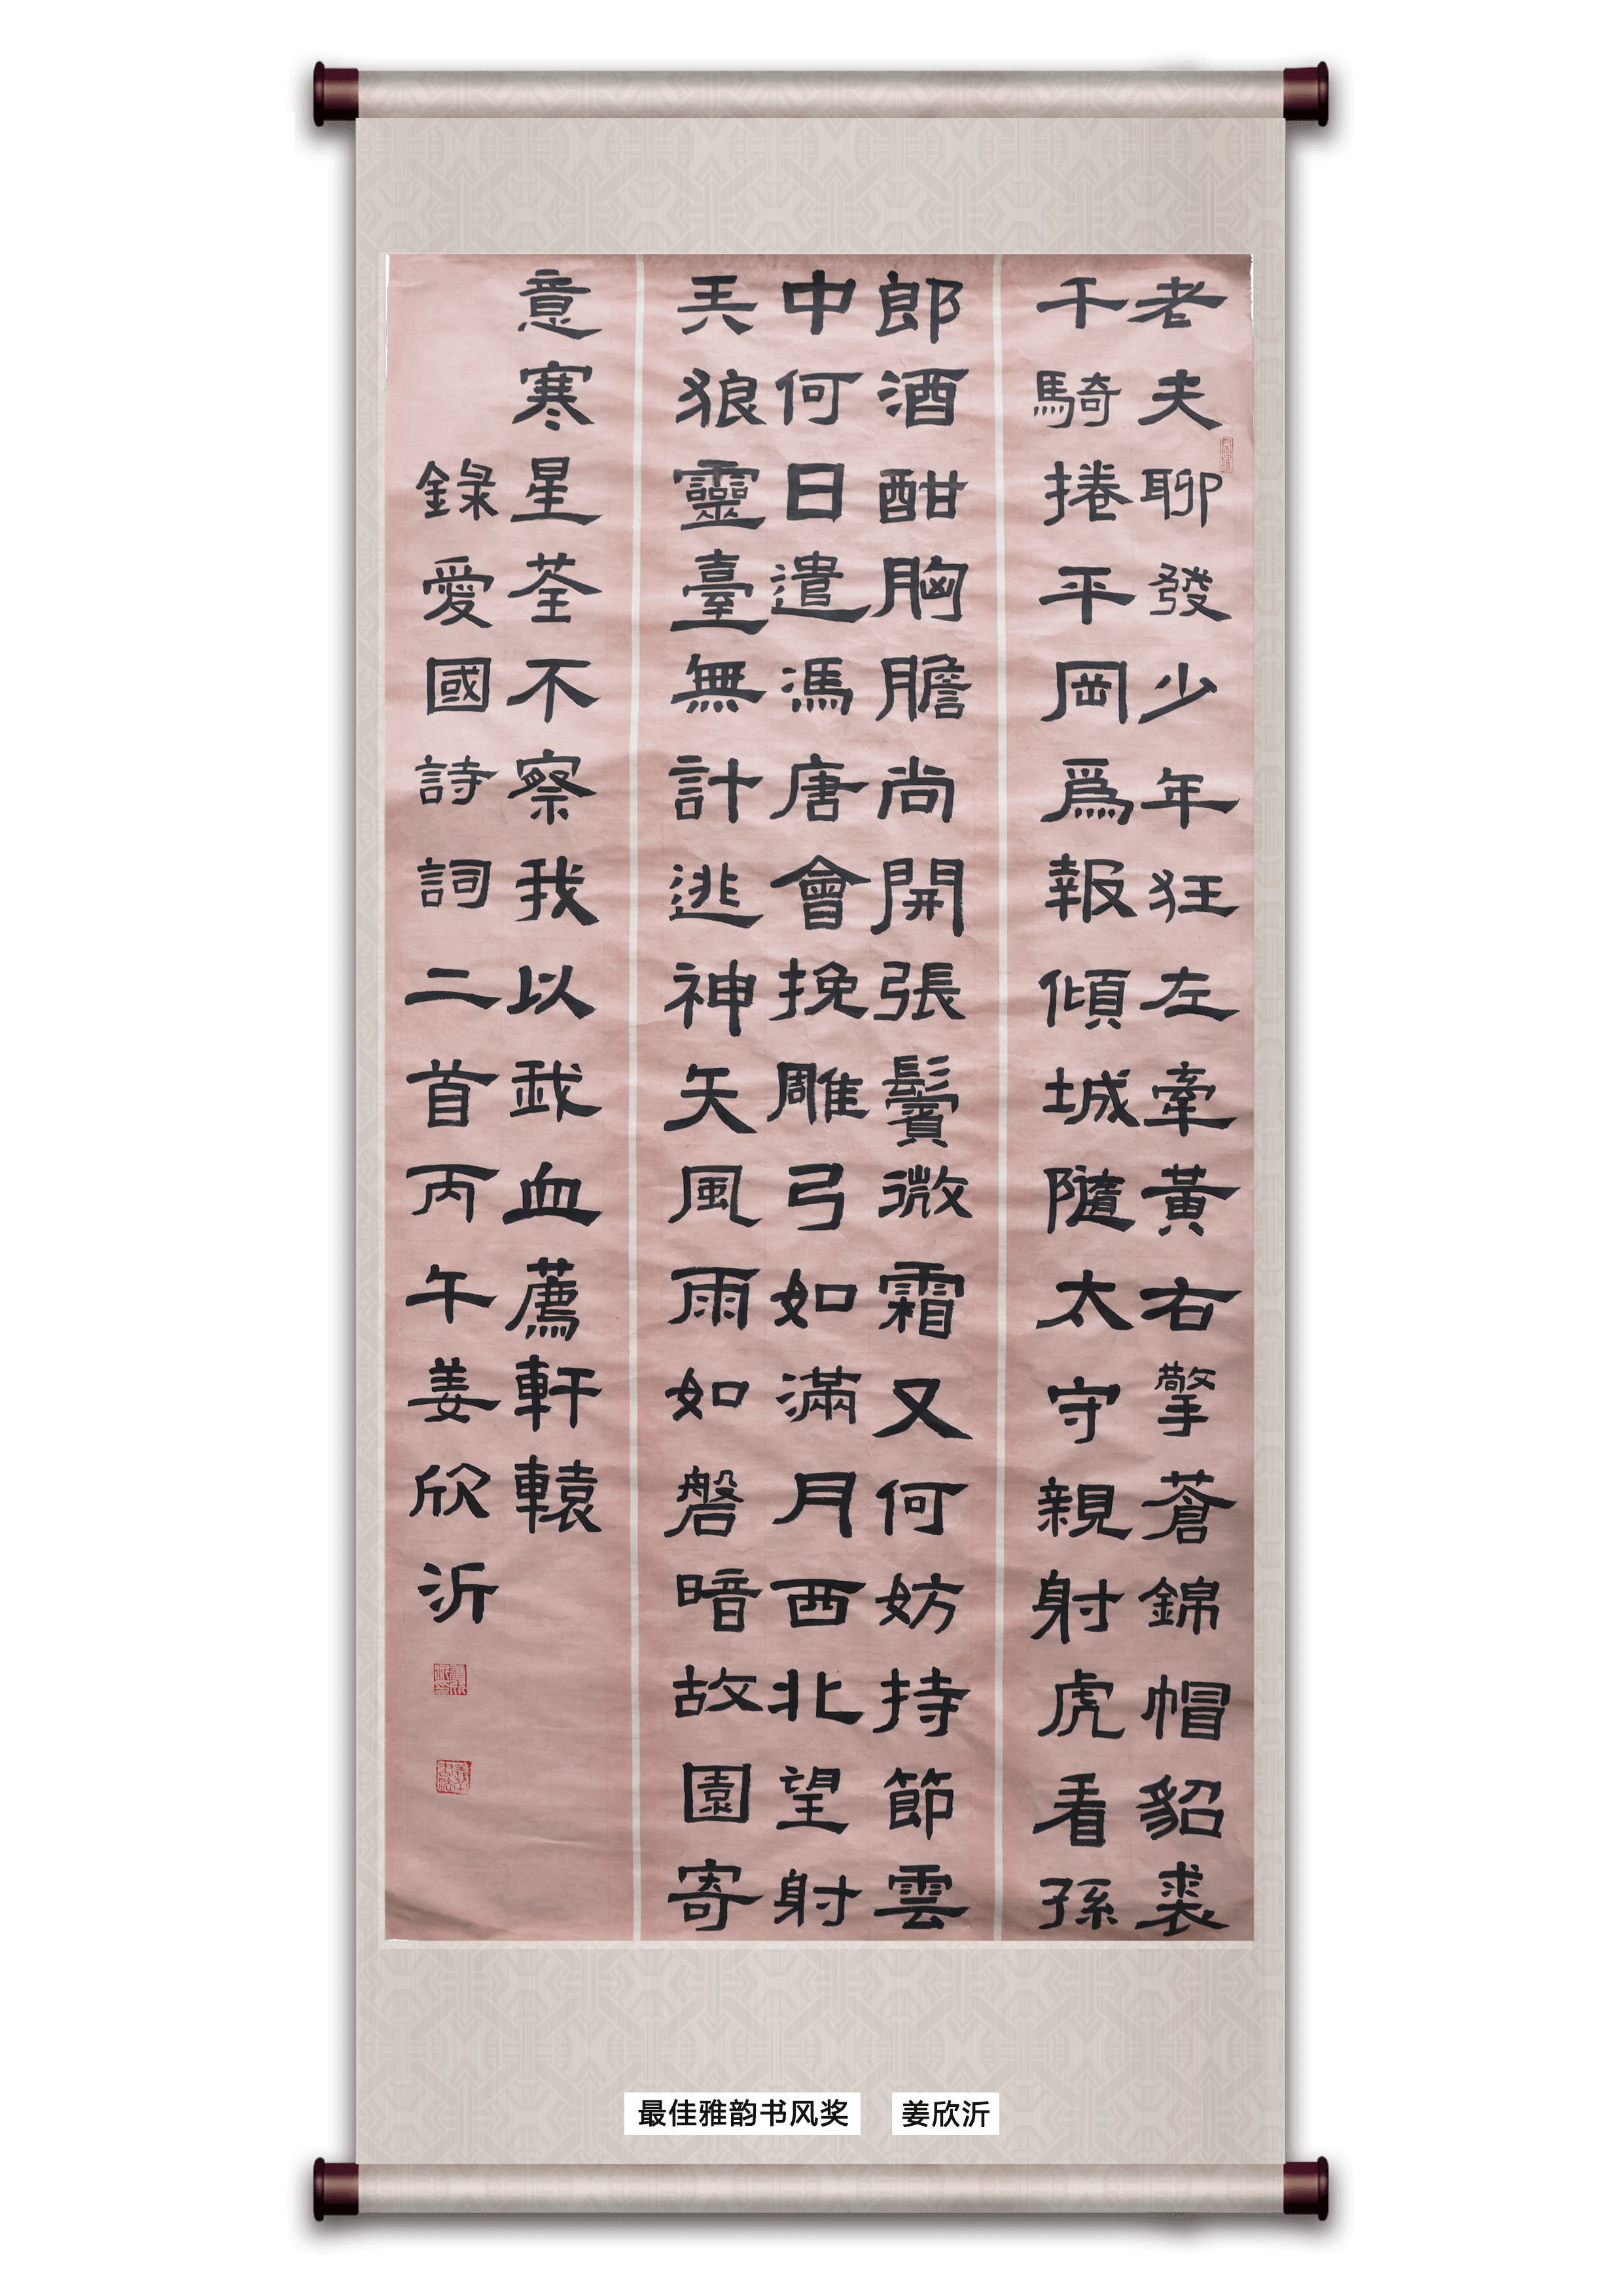 老夫聊發少年狂左牽黃右擎蒼錦帽貂裘
千騎捲平岡爲報傾城隨太守親射虎看孫
郎酒酣胸膽尚開張鬢微霜又何妨持節雲
中何日遣馮唐會挽雕弓如滿月西北望射
兲狼靈臺無計逃神矢風雨如磐暗故園寄
意寒星荃不察我以我血薦軒轅
錄愛國詩詞二首丙午姜欣沂
最佳雅韵书风奖 姜欣沂